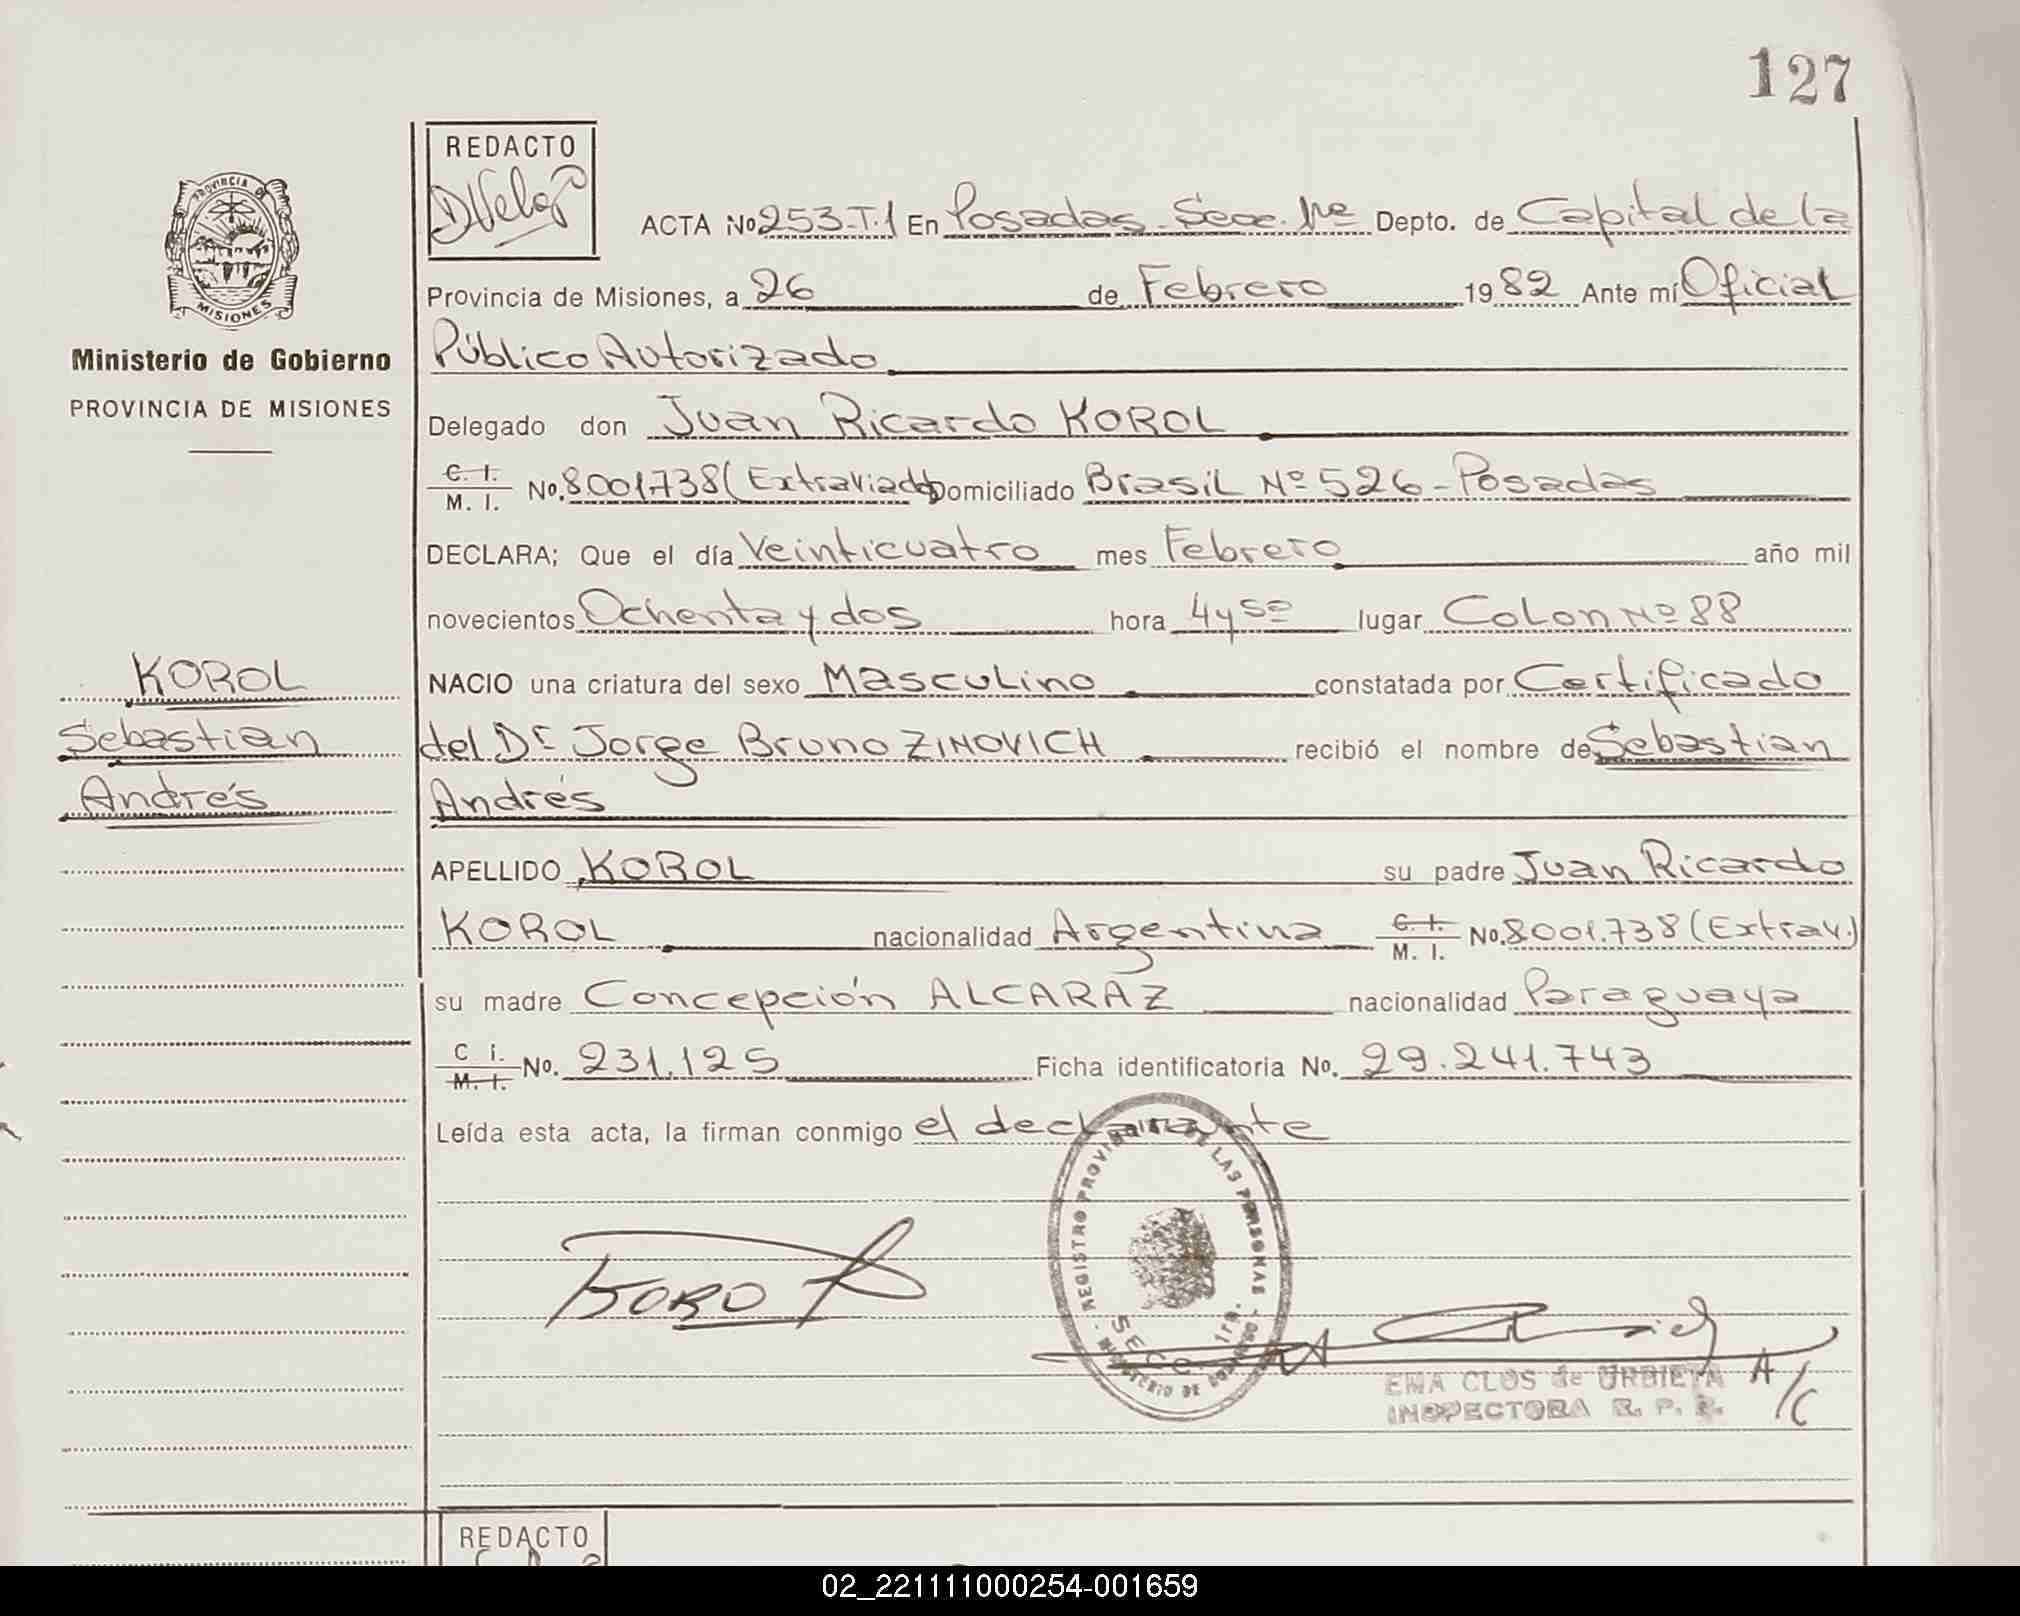 127
REDACTO
PROVINCIA DE
MISIONES
Ministerio de Gobierno
PROVINCIA DE MISIONES
ACTA No 253-T.1 En Posadas - Secc. 1ra Depto. de Capital de la
Provincia de Misiones, a 26 de Febrero 1982 Ante mí Oficial
Público Autorizado
Delegado don Juan Ricardo KOROL
C. I. M. I. No. 8001.738 (Extraviado) Domiciliado Brasil Nº 526 - Posadas
DECLARA; Que el día Veinticuatro mes Febrero año mil
novecientos Ochenta y dos hora 4 y 50 lugar Colon Nº 88
NACIO una criatura del sexo Masculino constatada por Certificado
del Dr Jorge Bruno ZINOVICH recibió el nombre de Sebastian
Andrés
KOROL
Sebastian
Andrés
APELLIDO KOROL su padre Juan Ricardo
KOROL nacionalidad Argentina C. I. M. I. No. 8001.738 (Extrav.)
su madre Concepción ALCARAZ nacionalidad Paraguaya
C I. M. I. No. 231.125 Ficha identificatoria No. 29.241.743
Leída esta acta, la firman conmigo el declarante
REGISTRO PROVINCIAL DE LAS PERSONAS
MINISTERIO DE GOBIERNO
SECC. 1ra.
KOROL
EMA CLOS de URBIETA A/C
INSPECTORA R. P. P.
REDACTO
02_221111000254-001659